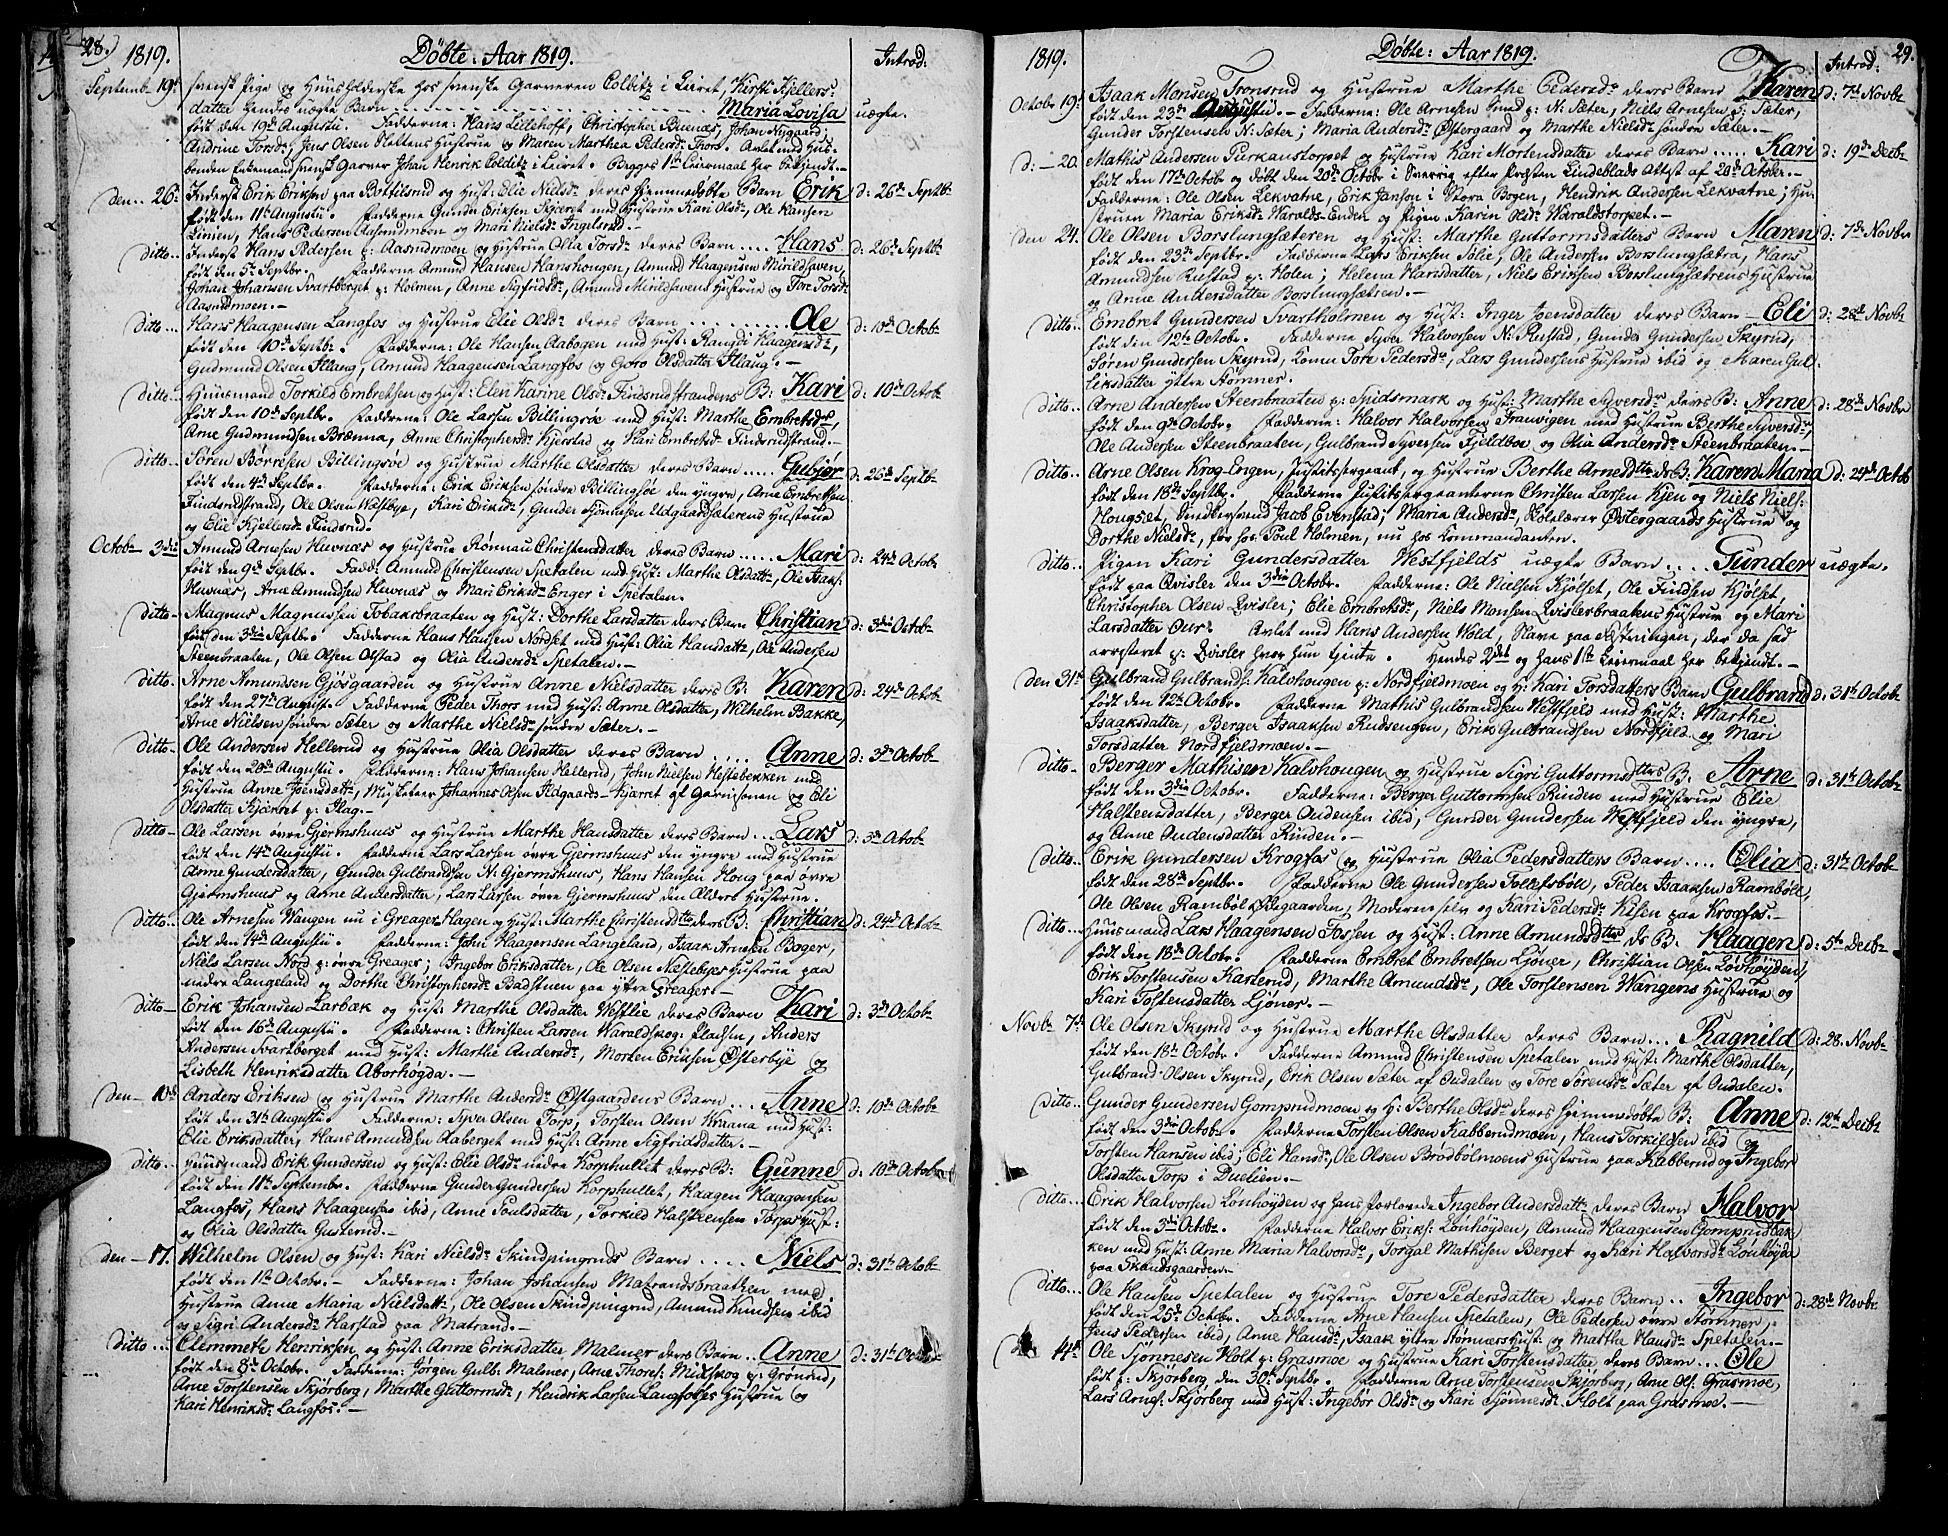 28.) 1819. Döbte: Aar 1819. Introd:
Septembr 19de svensk Pige og Huusholderske hos svenske Garveren Colditz i Leiret, Kirsti Kjellers-
datter hendes uægte Barn Maria Lovisa uægte.
født den 19de Augusti. Fadderne: Hans Lillehoff, Christopher Buenæs, Johan Nygaard,
Andrine Torsdr, Jens Olsen Slettens Hustrue og Maren Marthea Pedersdr Thors. Avlet med Hus-
bonden Enkemand svensk Garver Johan Henrik Colditz i Leiret. Begges 1te Leiermaal her bekjendt.
den 26de Inderst Erik Eriksen paa Bottilsrud og Hust: Elie Nielsdr deres hjemmedøbte Barn Erik d: 26de Septbr
født den 11te Augusti. Fadderne Gunder Eriksen Skjeret med Hustrue Kari Olsdr, Ole Hansen
Linien, Hans Pedersen Aasmdmoen og Mari Nielsdr Ingelsrud.
ditto Inderst Hans Pedersen p: Aasmdmoen og Hustrue Olia Torsdr deres Barn Hans d: 26de Septbr
født den 5te Septbr. Fadderne Amund Hansen Hanshougen, Amund Haagensen Mirildhaven,
Johan Johansen Svartberget p: Holmen, Anne Sigfridsdr, Amund Mirildhavens Hustrue og Tore Torsdr
Aasmdmoen.
ditto Hans Haagensen Langfos og Hustrue Elie Olsdr deres Barn Ole d: 10de Octobr
født den 10de Septbr. Fadderne: Ole Hansen Aabogen med Hust: Rangdi Haagensdr,
Gudmund Olsen Flaug, Amund Haagensen Langfos og Goro Olsdatter Flaug.
ditto Huusmand Torkild Embretsen og Hust: Elen Karine Olsdr Findsrudstrandens B: Kari d: 10de Octobr
født den 10de Septbr. Fadderne: Ole Larsen Billingsøe med Hust: Marthe Embretsdr,
Arne Gudmundsen Brænna, Anne Christophersdr Kjerstad og Kari Embretsdr Findsrudstrand.
ditto Søren Børresen Billingsøe og Hustrue Marthe Olsdatter deres Barn Gubjør d: 26de Septbr
født den 4de Septbr. Fadderne: Erik Eriksen søndre Billingsøe den yngre, Arne Embretsen
Findsrudstrand, Ole Olsen Wæstbye, Kari Eriksdr, Gunder Sjønnesen Udgaardsæterens Hustrue
og Elie Kjellersdr Findsrud.
Octobr 3die Amund Arnesen Huvnæs og Hustrue Rønnau Christensdatter deres Barn Mari d: 24de Octobr
født den 9de Septbr. Fadd: Amund Christensen Spetalen med Hust: Marthe Olsdattr, Ole Isaks:
Huvnæs, Arne Amundsen Huvnæs og Mari Eriksdr Enger i Spetalen.
ditto Magnus Magnussen Tobaksbraaten og Hust: Dorthe Larsdatter deres Barn Christian d: 3die Octobr
født den 3die Septbr. Fadderne Hans Hansen Nordset med Hust: Olia Hansdattr, Ole Andersen
Steenbraaten, Ole Olsen Ofstad og Olia Andersdr Spetalen.
ditto Arne Amundsen Gjøsgaarden og Hustrue Anne Nielsdatter deres B: Karen d: 24de Octobr
født den 27de August. Fadderne Peder Thors med Hust: Anne Olsdatter, Wilhelm Bakke,
Arne Nielsen søndre Sæter og Marthe Nielsdr søndre Sæter.
ditto Ole Andersen Hellerud og Hustrue Olia Olsdatter deres Barn Anne d: 3de Octobr
født den 20de Augusti. Fadderne: Hans Johansen Hellerud, John Nielsen Hestebekken med
Hustrue Anne Joensdattr, Musketeer Johannes Olsen Flagaards-Kjærret af Garnisonen og Eli
Olsdatter Kjærret p: Flag.
ditto Ole Larsen øvre Gjermshuus og Hustrue Marthe Hansdatter deres Barn Lars d: 3de Octobr
født den 14de Augusti. Fadderne Lars Larsen øvre Gjermshuus den yngre med Hustrue
Anne Gundersdatter, Gunder Gulbrandsen N: Gjermshuus, Hans Hansen Houg paa øvre
Gjermshuus og Anne Andersdatter, Lars Larsen øvre Gjermshuus den Ældres Hustrue.
ditto Ole Arnesen Wangen nu i Greager Hagen og Hust: Marthe Christensdtrs deres B: Christian d: 24de Octobr
født den 14de Augusti. Fadderne: John Haagensen Langeland, Isaak Arnesen Boger,
Niels Larsen Nord p: øvre Greager; Ingebor Eriksdatter, Ole Olsen Næstebyes Hustrue paa
nedre Langeland og Dorthe Christophersdr Badstuen paa ytre Greager.
ditto Erik Johansen Larbæk og Hust: Marthe Olsdatter Westlie deres Barn Kari d: 3de Octobr
født den 16de Augusti. Fadderne: Christen Larsen Waraldskog-Pladsen, Anders
Andersen Svartberget med Hust: Marthe Andersdr, Morten Eriksen Østerbye og
Lisbeth Henriksdatter Aborhøgda.
den 10de Anders Eriksen og Hustrue Marthe Andersdr Østgaardens Barn Anne d: 10de Octobr
født den 31te Augusti. Fadderne: Syver Olsen Torp, Torsten Olsen Kraana med Hust:
Elie Eriksdatter, Hans Amundsen Aaberget med Hust: Anne Sigfridsdatter.
ditto Huusmand Erik Gundersen og Hust: Elie Olsdr nedre Korphullet deres B: Gunne d: 10de Octobr
født den 11te Septembr. Fadderne Gunder Gundersen Korphullet, Haagen Haagensen
Langfos, Hans Haagensen ibid, Anne Poulsdatter, Torkild Halsteensen Torps Hust:
og Olia Olsdatter Gusterud.
den 17. Wilhelm Olsen og Hust: Kari Nielsdr Skindpingruds Barn Niels d: 31te Octobr
født den 1te Octobr. Fadderne: Johan Johansen Matrandsbraathen med
Hustrue Anne Maria Nielsdattr, Ole Olsen Skindpingrud, Amund Knudsen ibid
og Sigri Andersdr Harstad paa Matrand.
ditto Clemmeth Henriksen og Hust: Anne Eriksdatter Malmer deres Barn Anne d: 31te Octobr
født den 8de Octobr. Fadderne: Jørgen Gulb: Malmer, Arne Thores: Mitskog p: Grønrud,
Arne Torstensen Skjørberg, Marthe Guttormsdr, Hendrik Larsen Langfosses Hustrue og
Kari Henriksdr Langfos.
1819. Døbte: Aar 1819. Introd: 29.
Octobr 19de Isaak Monsen Tronsrud og Hustrue Marthe Pedersdr deres Barn Karen d: 7de Novbr
født den 23de Augusti. Fadderne: Ole Arnesen Smed p: N: Sæter, Niels Arnesen p: Sæter,
Gunder Torstensen N: Sæter; Maria Andersdr Østergaard og Marthe Nielsdr søndre Sæter.
d: 20. Mathis Andersen Purkanstorpet og Hustrue Kari Mortensdatter deres Barn Kari d: 19de Decbr
født den 17de Octobr og døbt den 20de Octobr i Sverrig efter Præsten Lindeblads Attest af 20de October.
Fadderne: Ole Olsen Lekvatne, Erik Janson i Stora Bogen, Hendrik Andersen Lekvatne; Hu-
struen Maria Eriksdr Waralds-Enden og Pigen Karin Olsdr Waraldstorpet.
den 24. Ole Olsen Borslungsæteren og Hust: Marthe Guttormsdatters Barn Maren d: 7de Novbr
født den 23de Septbr. Fadderne Lars Eriksen Tolie, Ole Andersen Borslungsætra, Hans
Amundsen Rustad p: Holen; Helena Hansdatter, Niels Eriksen Borslungsætrens Hustrue
og Anne Andersdatter Borslungsætren.
ditto Embret Gundersen Svartholmen og Hust: Inger Joensdatter deres Barn Eli d: 28de Novbr
født den 12te Octobr. Fadderne Syver Halvorsen N: Rustad, Gunder Gundersen Skyrud,
Søren Gundersen Skyrud, Kone Tore Pedersdr, Lars Gundersens Hustrue ibid og Maren Gul-
liksdatter yttre Stømner.
ditto Arne Andersen Steenbraaten p: Spidsmark og Hust: Marthe Syversdr deres B: Anne d: 28de Novbr
født den 9de Octobr. Fadderne: Halvor Halvorsen Fraavigen med Hustrue Berthe Syversdr,
Ole Andersen Steenbraaten, Gulbrand Syversen Fjeldboe og Olia Andersdr Steenbraaten.
ditto Arne Olsen Krog-Engen, Justitssergeant, og Hustrue Berthe Arnesdtrs drs B: Karen Maria d: 24de Octob
født den 18de Septbr. Fadderne Justitssergeanterne Christen Larsen Kjen og Niels Niels:
Hougset, Snedkersvend Jacob Evenstad; Maria Andersdr, Skolelærer Østergaards Hustrue og
Dorthe Nielsdr, før hos Poul Holmen, nu hos Kommandanten.
ditto Pigen Kari Gundersdatter Westfjelds uægte Barn Gunder uægte.
født paa Qvisler den 3die Octobr. Fadderne: Ole Nielsen Kjølset, Ole Findsen Kjølset,
Christopher Olsen Qvisler; Elie Embretsdr, Niels Monsen Qvislerbraatens Hustrue og Mari
Larsdatter Our. Avlet med Hans Andersen Wold, Slave paa Fæstningen, der da sad
arresteret p: Qvisler hvor hun tjente. Hendes 2det og hans 1te Leiermaal her bekjendt.
den 31te Gulbrand Gulbrands: Kalvhougen p: Nordfjeldmoen og H: Kari Torsdatters Barn Gulbrand d: 31te Octobr
født den 12te Octobr. Fadderne Mathis Gulbrandsen Westfjeld med Hust: Marthe
Isaaksdatter, Berger Isaaksen Rudsengen, Erik Gulbrandsen Nordfjeld og Mari
Torsdatter Nordfjeldmoen.
ditto Berger Mathisen Kalvhougen og Hustrue Sigri Guttormsdtters B: Arne d: 31te Octobr
født den 3die Octobr. Fadderne: Berger Guttormsen Rinden med Hustrue Elie
Halsteensdatter, Berger Audensen ibid, Gunder Gundersen Westfjeld den yngre,
og Anne Audensdatter Rinden.
ditto Erik Gundersen Krogfos og Hustrue Olia Pedersdatters Barn Olia d: 31te Octobr
født den 28de Septbr. Fadderne Ole Gundersen Tollefsbøll, Peder Isaaksen Rambøll,
Ole Olsen Rambøl p: Hagaarden, Moderen selv og Kari Pedersdr Kilen paa Krogfos.
ditto Huusmand Lars Haagensen Fossen og Hust: Anne Amundsdtrs ds B: Haagen d: 5te Decbr
født den 18de Octobr. Fadderne Embret Embretsen Ljøner, Christian Olsen Løvhøyden,
Erik Torstensen Karterud, Marthe Amundsdr, Ole Torstensen Wangens Hustrue og
Kari Torstensdatter Ljøner.
Novbr 7de Ole Olsen Skyrud og Hustrue Marthe Olsdatter deres Barn Ragnild d: 28. Novbr
født den 18de Octobr. Fadderne Amund Christensen Spetalen med Hust: Marthe Olsdatter,
Gulbrand Olsen Skyrud, Erik Olsen Sæter af Oudalen og Tore Sørensdr Sæter af Oudalen.
ditto Gunder Gundersen Gomprudmoen og H: Berthe Olsdr deres hjemmedøbte B: Anne d: 12te Decbr
født den 3die Octobr. Fadderne Torsten Olsen Kabberudmoen, Hans Torkildsen ibid og
Torsten Hansen ibid; Eli Hansdr, Ole Olsen Brødbølmoens Hustrue paa Kabberud og Ingebor
Olsdatter Torp i Duelien.
ditto Erik Halvorsen Lønhøyden og hans Forlovede Ingebor Andersdattr deres Barn Halvor
født den 3die Octobr. Fadderne Halvor Eriks: Lønhøyden, Amund Haagensen Gomprudbak-
ken med Hust: Anne Maria Halvorsdr, Torgal Mathisen Berget og Kari Halvorsdr Lønhøyda
paa Skandsgaarden.
ditto Ole Hansen Spetalen og Hustrue Tore Pedersdatter deres Barn Ingebor d: 28de Novbr
født den 25de Octobr. Fadderne Arne Hansen Spetalen, Ole Pedersen øvre Stømner,
Jens Pedersen ibid, Anne Hansdr, Isaak yttre Stømners Hust: og Marthe Hansdr Spetalen.
14de Ole Sjønnesen Holt p: Grasmoe og Hustrue Kari Torstensdatter deres Barn Ole
født p: Skjørberg den 30te Septbr. Fadderne Arne Torstensen Skjørberg, Arne Ols: Grasmoe,
Lars Arnes: Skjørberg med Hust: Ingebor Olsdr og Kari Sjønnesdr Holt paa Grasmoe.